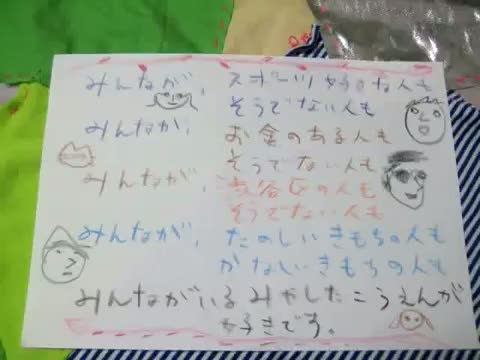 みんなが、スポーツ好きな人も
そうでない人も
みんなが、お金のある人も
そうでない人も
みんなが、渋谷区の人も
そうでない人も
みんなが、たのしいきもちの人も
かなしいきもちの人も
みんながいるみやしたこうえんが
好きです。